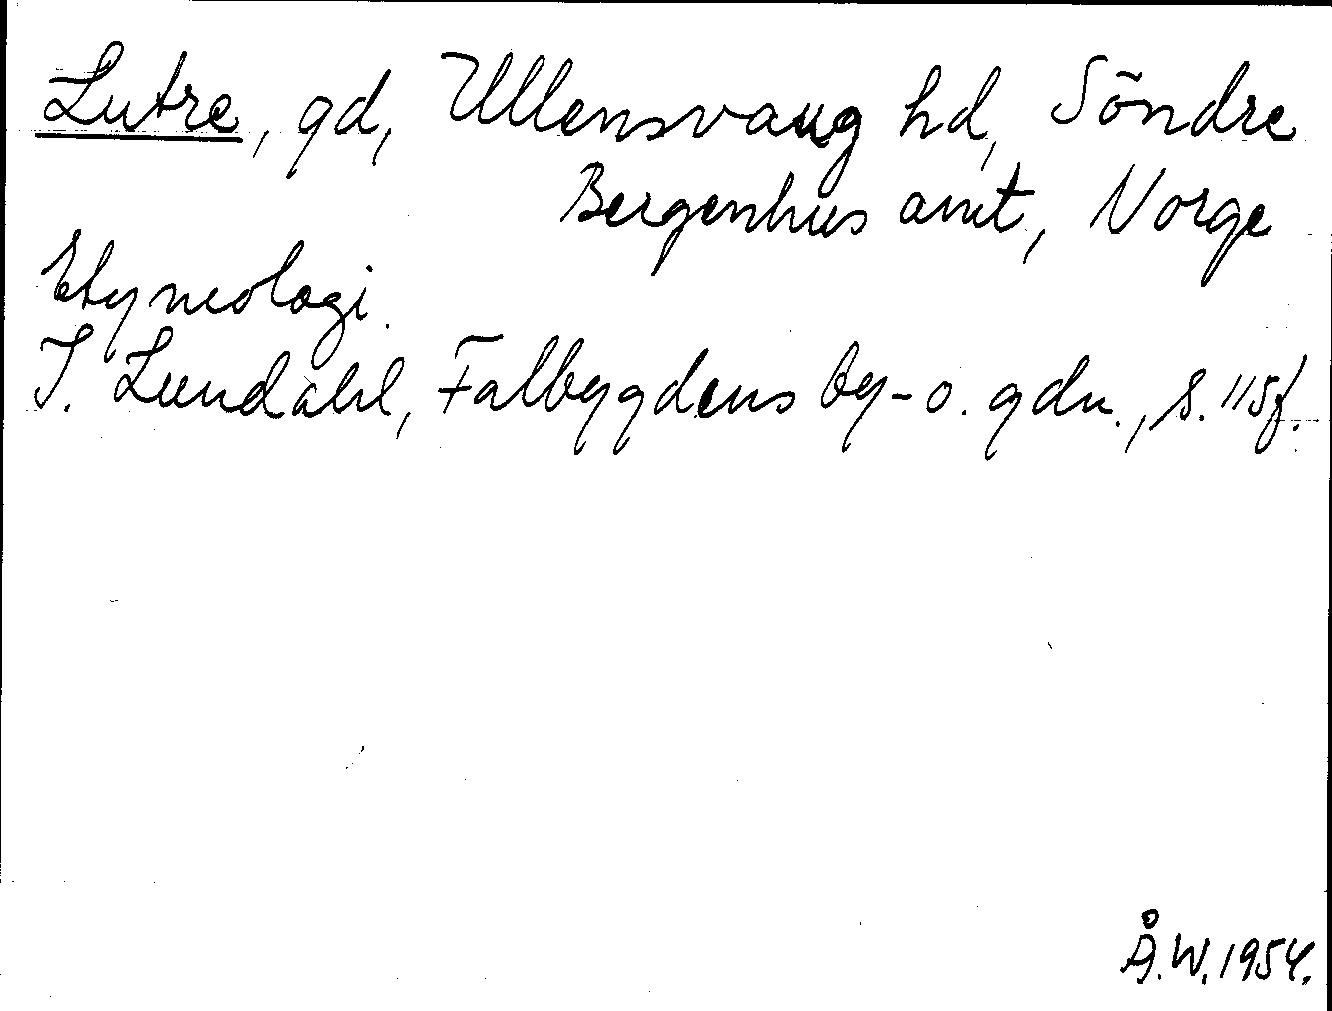 Lutre, gd, Ullensvaug hd, Söndre
Bergenhus amt, Norge
Etymologi.
I. Lundahl, Falbygdens by- o. gdn., s. 115f.
Å.W. 1954.